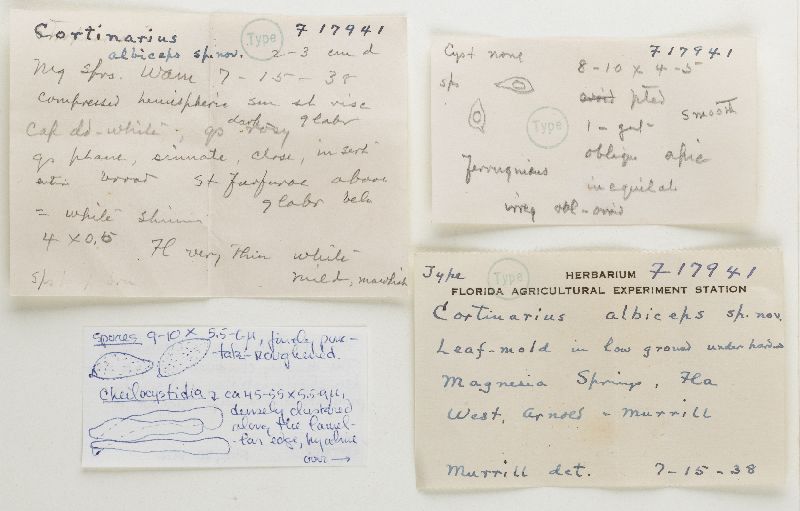 Cortinarius F 17941
albiceps sp. nov. Type 2-3 cm d
Mg Sprs. Wam 7-15-38
compressed hemispheric sm st visc
Cap dd-white, gs dark rosy glabr
gs phane, sinnate, close, insert
St furfurac above
glabr belo
= white shinin
4 X 0.5 Fl very thin white
mild, mawkish
Cyst none F 17941
sps 8-10 x 4-5
ovoid pted
Type 1-gut- smooth
Ferruginious oblique apic
inequilat
irreg obl-ovoid
Spores 9-10 x 5.5-6μ, finely punc-
tate-roughened.
Cheilocystidia ca 45-55 x 5.5-9μ,
densely clustered
along the lamel-
lar edge, hyaline
over →
Type Type HERBARIUM F 17941
FLORIDA AGRICULTURAL EXPERIMENT STATION
Cortinarius albiceps sp. nov.
Leaf-mold in low ground under hardwds
Magnesia Springs, Fla
West, Arnold - Murrill
Murrill det. 7-15-38